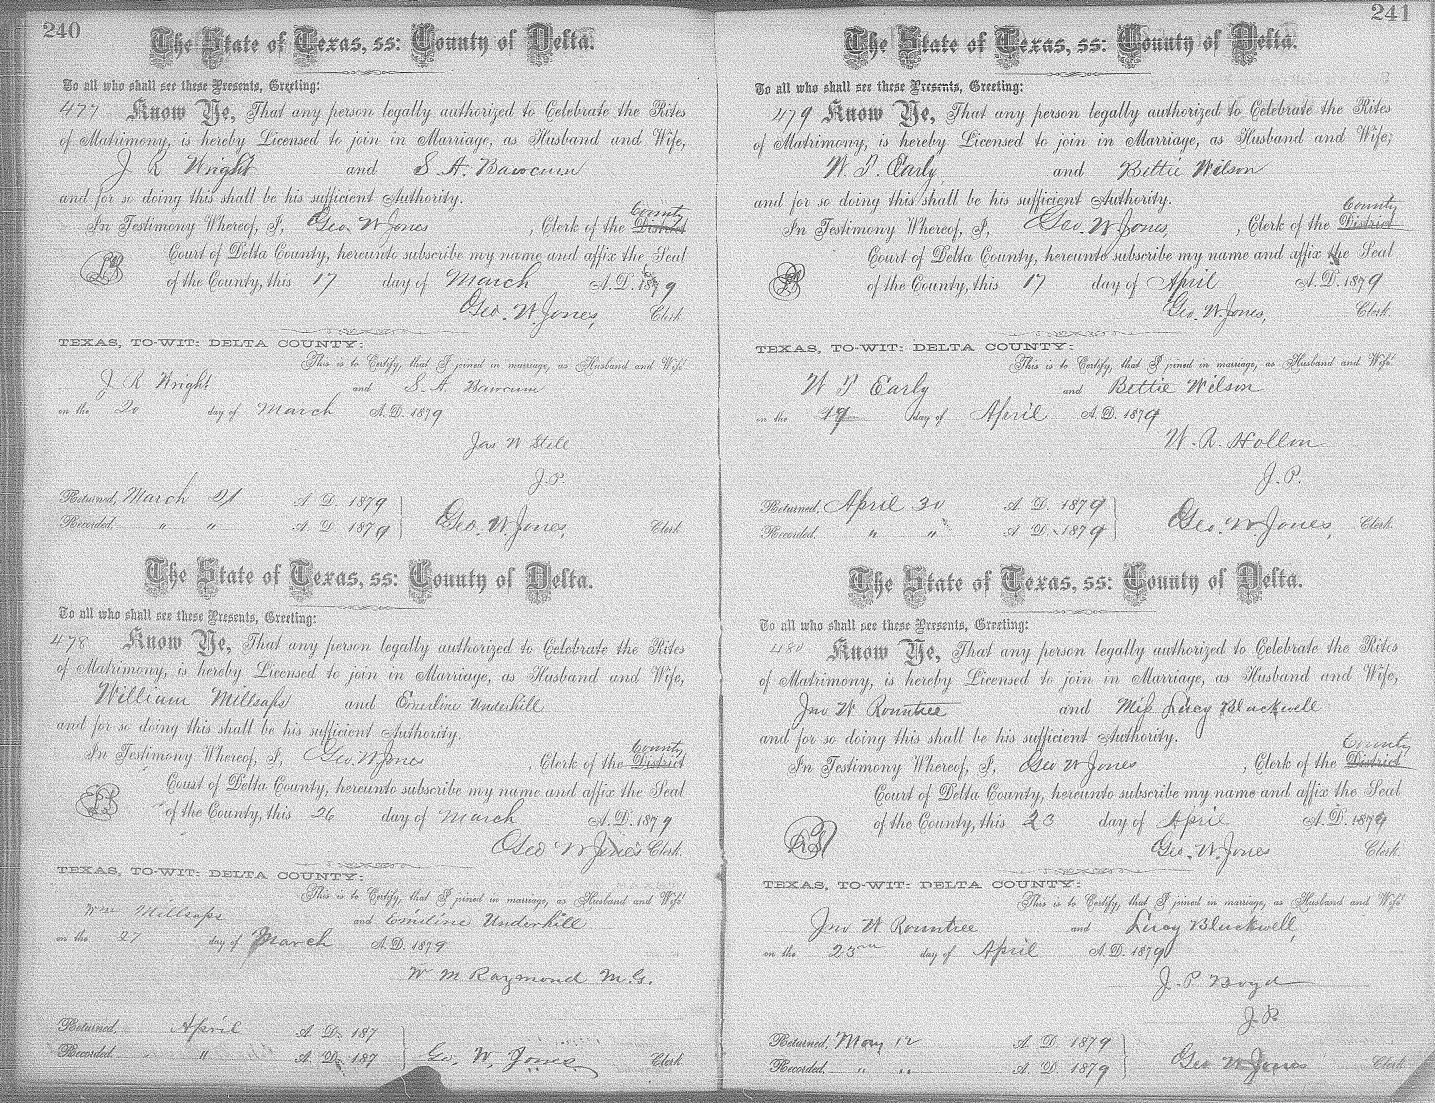 240
The State of Texas, ss: County of Delta.
To all who shall see these Presents, Greeting:
477 Know Ye, That any person legally authorized to Celebrate the Rites
of Matrimony, is hereby Licensed to join in Marriage, as Husband and Wife,
J R Wright and S. A. Bawcum
and for so doing this shall be his sufficient Authority.
County
In Testimony Whereof, I, Geo. W Jones, Clerk of the District
Court of Delta County, hereunto subscribe my name and affix the Seal
of the County, this 17 day of March A. D. 1879
Geo. W Jones, Clerk.
TEXAS, TO-WIT: DELTA COUNTY:
This is to Certify, that I joined in marriage, as Husband and Wife
J R Wright and S. A Bawcum
on the 20 day of March A. D. 1879
Jas W Still
J. P.
Returned, March 21 A. D. 1879
Recorded. " " A. D. 1879 Geo. W. Jones, Clerk
The State of Texas, ss: County of Delta.
To all who shall see these Presents, Greeting:
478 Know Ye, That any person legally authorized to Celebrate the Rites
of Matrimony, is hereby Licensed to join in Marriage, as Husband and Wife,
William Millsaps and Emerline Underhill
and for so doing this shall be his sufficient Authority.
County
In Testimony Whereof, I, Geo. W. Jones, Clerk of the District
Court of Delta County, hereunto subscribe my name and affix the Seal
of the County, this 26 day of March A. D. 1879
Geo W Jones Clerk.
TEXAS, TO-WIT: DELTA COUNTY:
This is to Certify, that I joined in marriage, as Husband and Wife
Wm Millsaps and Emiline Underhill
on the 27 day of March A. D. 1879
W M Raymond M. G.
Returned, April A. D. 187
Recorded. " A. D. 187 Geo. W. Jones Clerk
241
The State of Texas, ss: County of Delta.
To all who shall see these Presents, Greeting:
479 Know Ye, That any person legally authorized to Celebrate the Rites
of Matrimony, is hereby Licensed to join in Marriage, as Husband and Wife;
W. T. Early and Bettie Wilson
and for so doing this shall be his sufficient Authority.
County
In Testimony Whereof, I, Geo. W. Jones, Clerk of the District
Court of Delta County, hereunto subscribe my name and affix the Seal
of the County, this 17 day of April A. D. 1879
Geo. W. Jones, Clerk.
TEXAS, TO-WIT: DELTA COUNTY:
This is to Certify, that I joined in marriage, as Husband and Wife
W T Early and Bettie Wilson
on the 19 day of April A. D. 1879
W. R. Hollon
J. P.
Returned, April 30 A. D. 1879
Recorded. " " A. D. 1879 Geo. W. Jones, Clerk.
The State of Texas, ss: County of Delta.
To all who shall see these Presents, Greeting:
480 Know Ye, That any person legally authorized to Celebrate the Rites
of Matrimony, is hereby Licensed to join in Marriage, as Husband and Wife,
Jno W Rountree and Miss Lucy Blackwell
and for so doing this shall be his sufficient Authority.
County
In Testimony Whereof, I, Geo W Jones, Clerk of the District
Court of Delta County, hereunto subscribe my name and affix the Seal
of the County, this 23 day of April A. D. 1879
Geo. W. Jones Clerk.
TEXAS, TO-WIT: DELTA COUNTY:
This is to Certify, that I joined in marriage, as Husband and Wife
Jno W Rountree and Lucy Blackwell,
on the day of April A. D. 1879
J. P Boyd
J. P.
Returned, May 12 A. D. 1879
Recorded. " " A. D. 1879 Geo W Jones Clerk